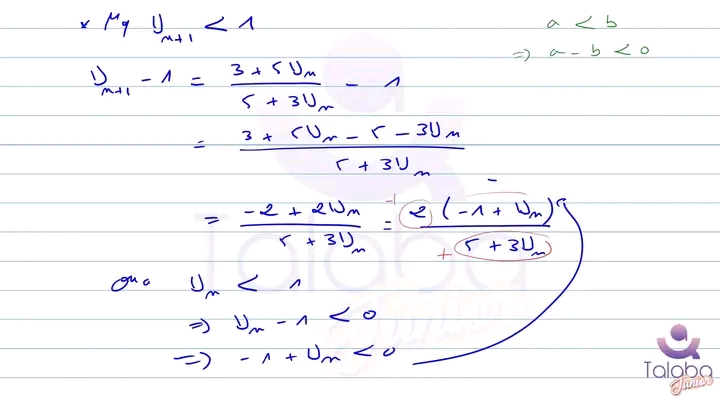 * Mq U_{n+1} < 1
a < b
=> a - b < 0
U_{n+1} - 1 = \frac{3 + 5U_n}{5 + 3U_n} - 1
= \frac{3 + 5U_n - 5 - 3U_n}{5 + 3U_n}
= \frac{-2 + 2U_n}{5 + 3U_n} = \frac{2(-1 + U_n)}{5 + 3U_n}
+
-
ona U_n < 1
=> U_n - 1 < 0
=> -1 + U_n < 0
Talaba
Junior
Talaba
Junior